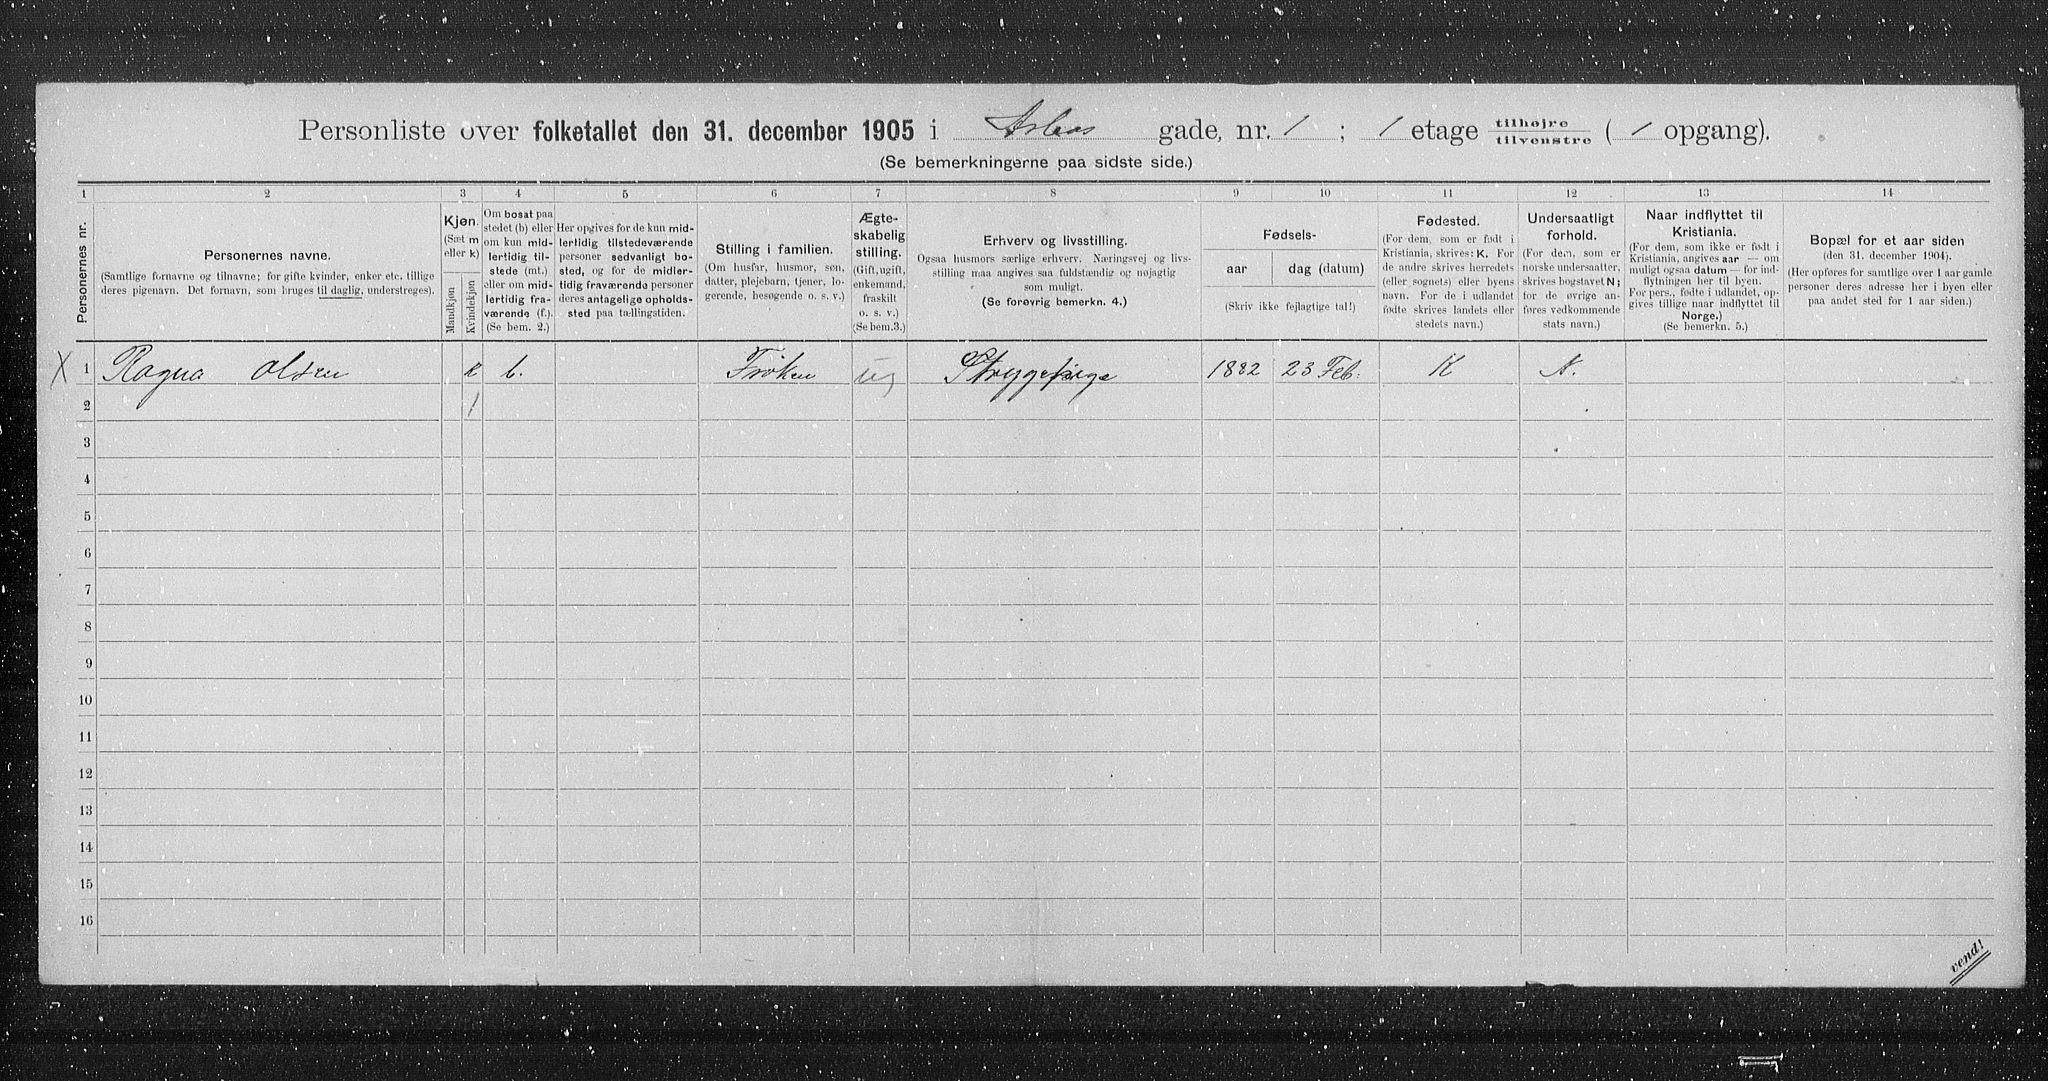 Personliste over folketallet den 31. december 1905 i Asløs gade, nr. 1 ; 1 etage tilhøjre tilvenstre ( 1 opgang).
(Se bemerkningerne paa sidste side.)
1 2 3 4 5 6 7 8 9 10 11 12 13 14
Personernes nr.
Personernes navne.
(Samtlige fornavne og tilnavne; for gifte kvinder, enker etc. tillige
deres pigenavn. Det fornavn, som bruges til daglig, understreges).
Kjøn.
(Sæt m
eller k)
Mandkjøn
Kvindekjøn
Om bosat paa
stedet (b) eller
om kun mid-
lertidig til-
stede (mt.)
eller om mid-
lertidig fra-
værende (f.).
(Se bem. 2.)
Her opgives for de kun mid-
lertidig tilstedeværende
personer sedvanligt bo-
sted, og for de midler-
tidig fraværende personer
deres antagelige opholds-
sted paa tællingstiden.
Stilling i familien.
(Om husfar, husmor, søn,
datter, plejebarn, tjener, lo-
gerende, besøgende o. s. v.)
Ægte-
skabelig
stilling.
(Gift, ugift,
enkemand,
fraskilt
o. s. v.)
(Se bem.3.)
Erhverv og livsstilling.
Ogsaa husmors særlige erhverv. Næringsvej og livs-
stilling maa angives saa fuldstændig og nøjagtig
som muligt.
(Se forøvrig bemerkn. 4.)
Fødsels-
aar
dag (datum)
(Skriv ikke fejlagtige tal!)
Fødested.
(For dem, som er født i
Kristiania, skrives: K. For
de andre skrives herredets
(eller sognets) eller byens
navn. For de i udlandet
fødte skrives landets eller
stedets navn.)
Undersaatligt
forhold.
(For dem, som er
norske undersaatter,
skrives bogstavet N;
for de øvrige an-
føres vedkommende
stats navn.)
Naar indflyttet til
Kristiania.
(For dem, som ikke er født i
Kristiania, angives aar — om
muligt ogsaa datum — for ind-
flytningen her til byen.
For pers., fødte i udlandet, op-
gives tillige naar indflyttet til
Norge.)
(Se bemerkn. 5.)
Bopæl for et aar siden
(den 31. december 1904).
(Her opføres for samtlige over 1 aar gamle
personer deres adresse her i byen eller
paa andet sted for 1 aar siden.)
X 1 Ragna Olsen k b. Frøken ug Strygepige 1882 23 Feb. K N.
2 1
3
4
5
6
7
8
9
10
11
12
13
14
15
16
vend!